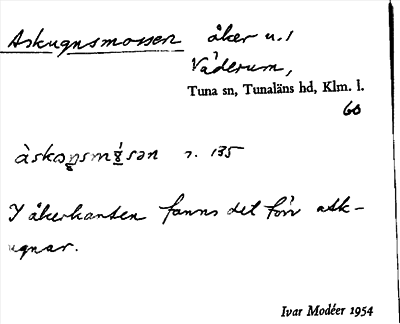 Askugnsmossen åker u.1
Väderum,
Tuna sn, Tunaläns hd, Klm. l.
60
s. 135
I åkerkanten fanns det förr ask-
ugnar.
Ivar Modéer 1954